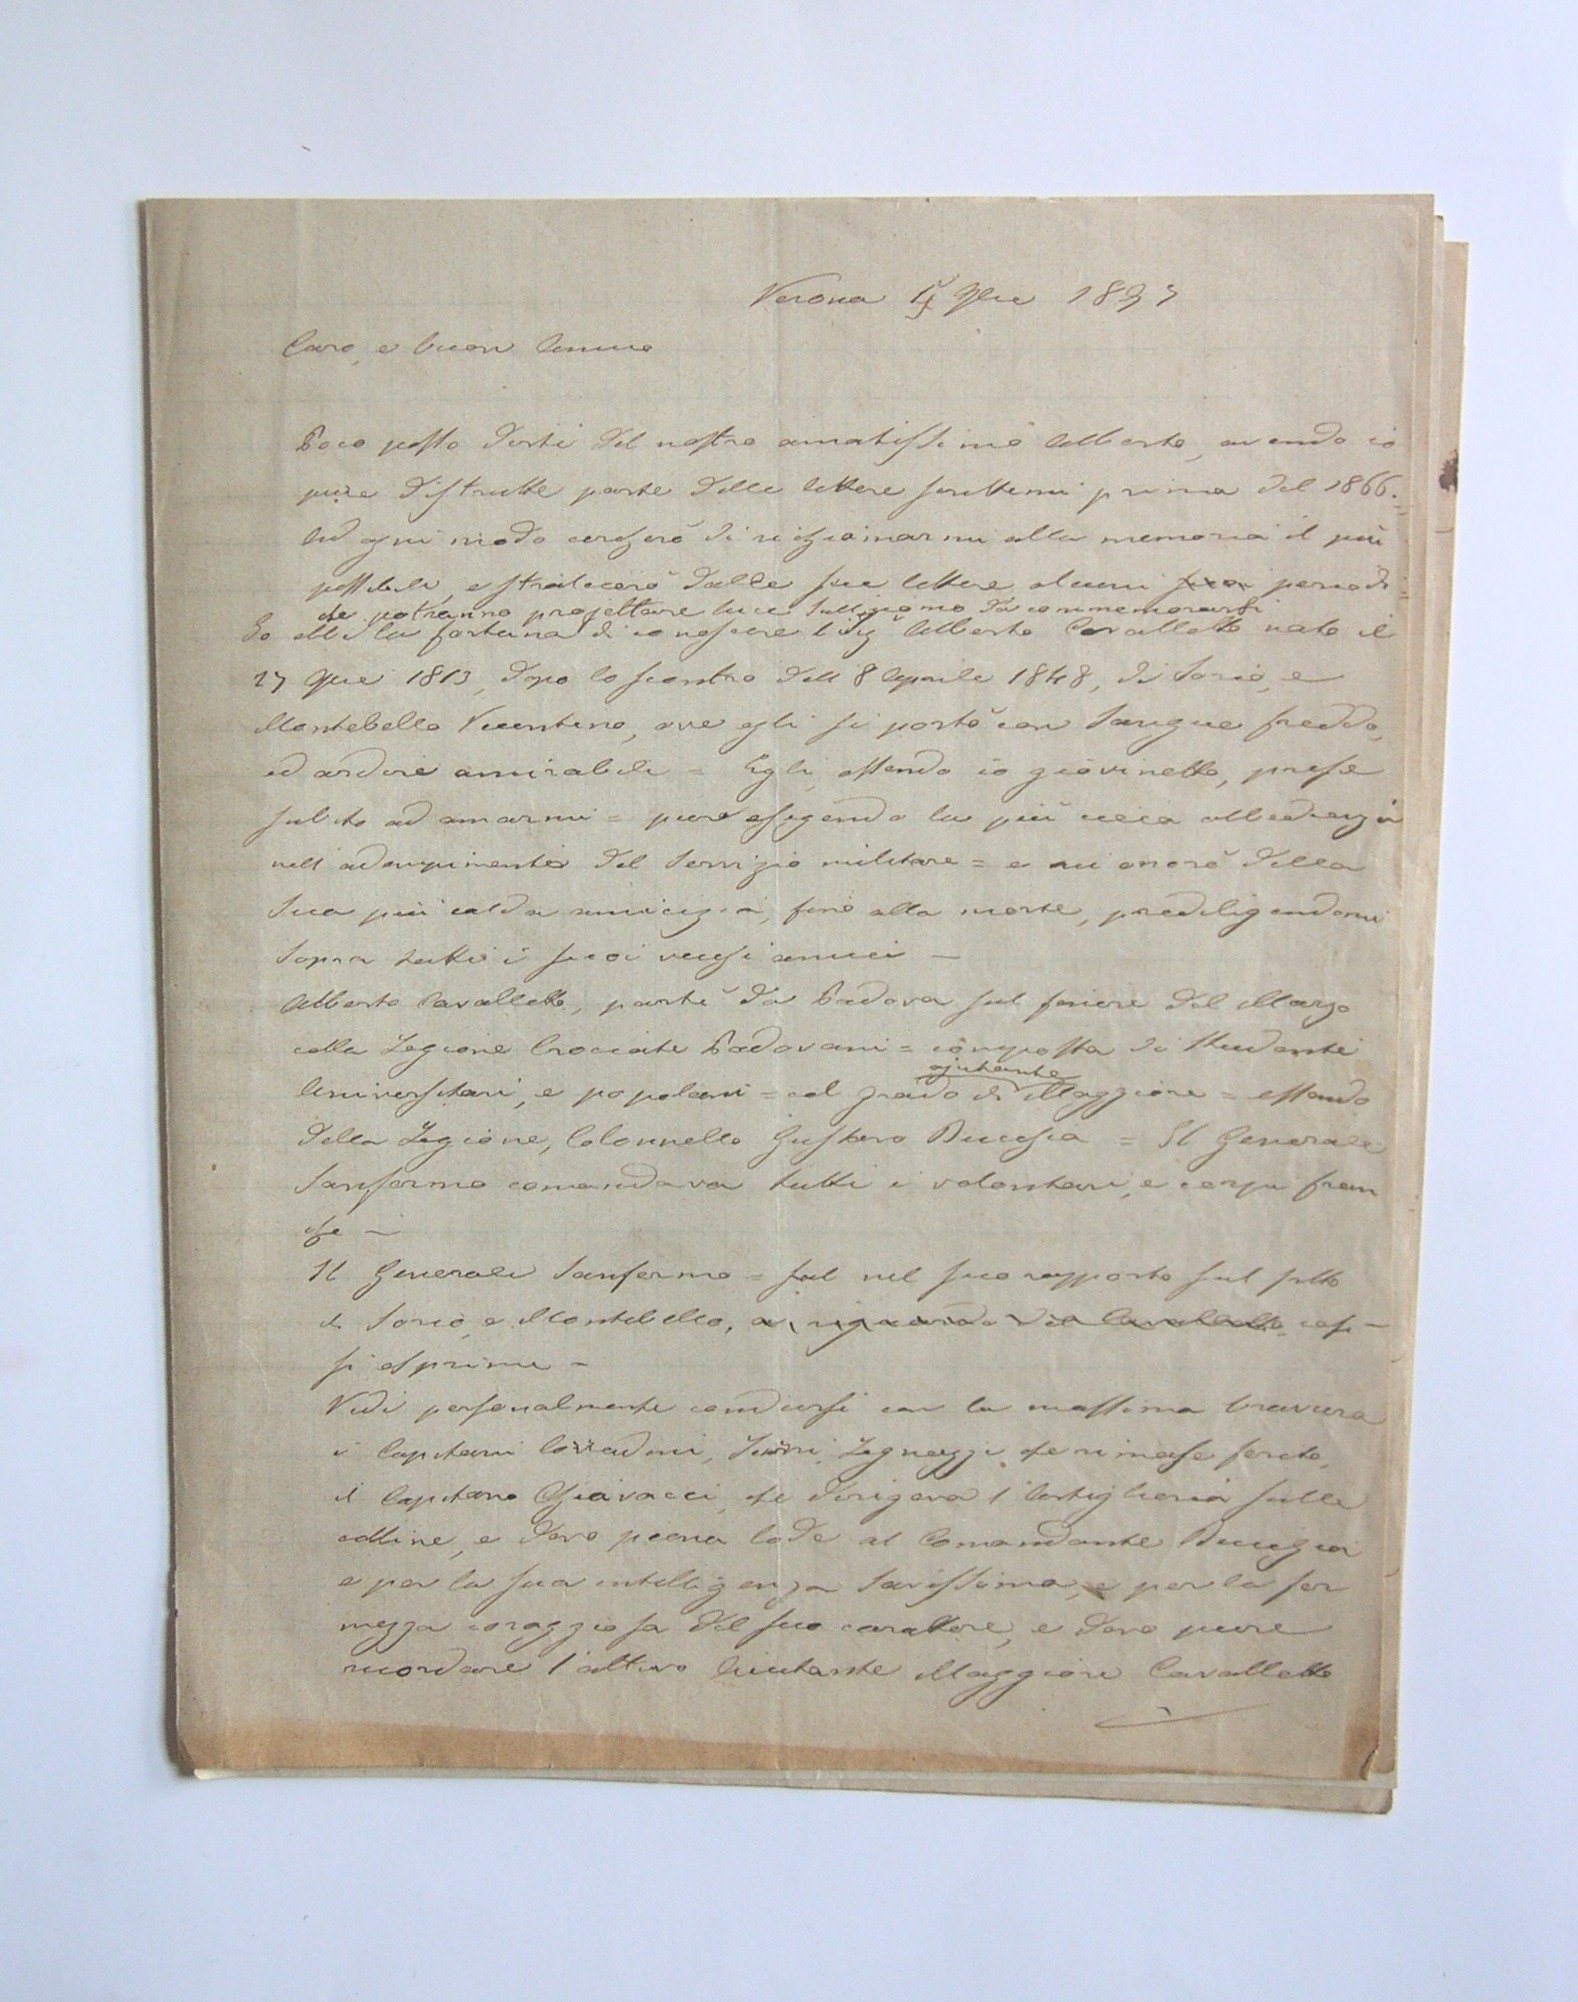 Verona 9bre 1897
Caro, e buon Amico
Poco posso dirti del nostro amatissimo Alberto, avendo io
pure distrutte parte delle lettere scrittemi prima del 1866.=
Ad ogni modo cercherò di richiamarmi alla memoria il più
possibile, e stralcierò dalle sue lettere alcuni periodi=
che potranno projettare luce sull'uomo da commemorarsi
Io ebbi la fortuna di conoscere l'Ing Alberto Cavalletto nato il
27 9bre 1813, dopo lo scontro dell' 8 Aprile 1848, di Sorio, e
Montebello Vicentino, ove egli si portò con sangue freddo,
ed ardire amirabili = Egli, essendo io giovinetto, prese
subito ad amarmi = pure esigendo la più cieca obbedienza
nell'adempimento del servizio militare = e mi onorò della
sua più calda amicizia, fino alla morte, prediligendomi
sopra tutti i suoi vecchi amici —
Alberto Cavalletto, partì da Padova sul finire del Marzo
colla Legione Crociati Padovani = composta di Studenti
ajutante
Universitari, e popolani = col grado di Maggiore = essendo
della Legione, Colonnello Gustavo Bucchia = Il Generale
Sanfermo comandava tutti i volontari, e corpi fran
chi —
Il Generale Sanfermo = nel suo rapporto sul fatto
di Sorio, e Montebello, a riguardo del Cavalletto così —
si esprime —
Vidi personalmente condursi con la massima bravura
i Capitani Corradini, Zignazzi che rimase ferito,
il Capitano Chiavacci, che dirigeva l'Artiglieria sulle
colline, e devo piena lode al Comandante Bucchia
e per la sua intelligenza, e per la fer
mezza coraggiosa del suo carattere, e devo pure
ricordare l'attivo Aiutante Maggiore Cavalletto